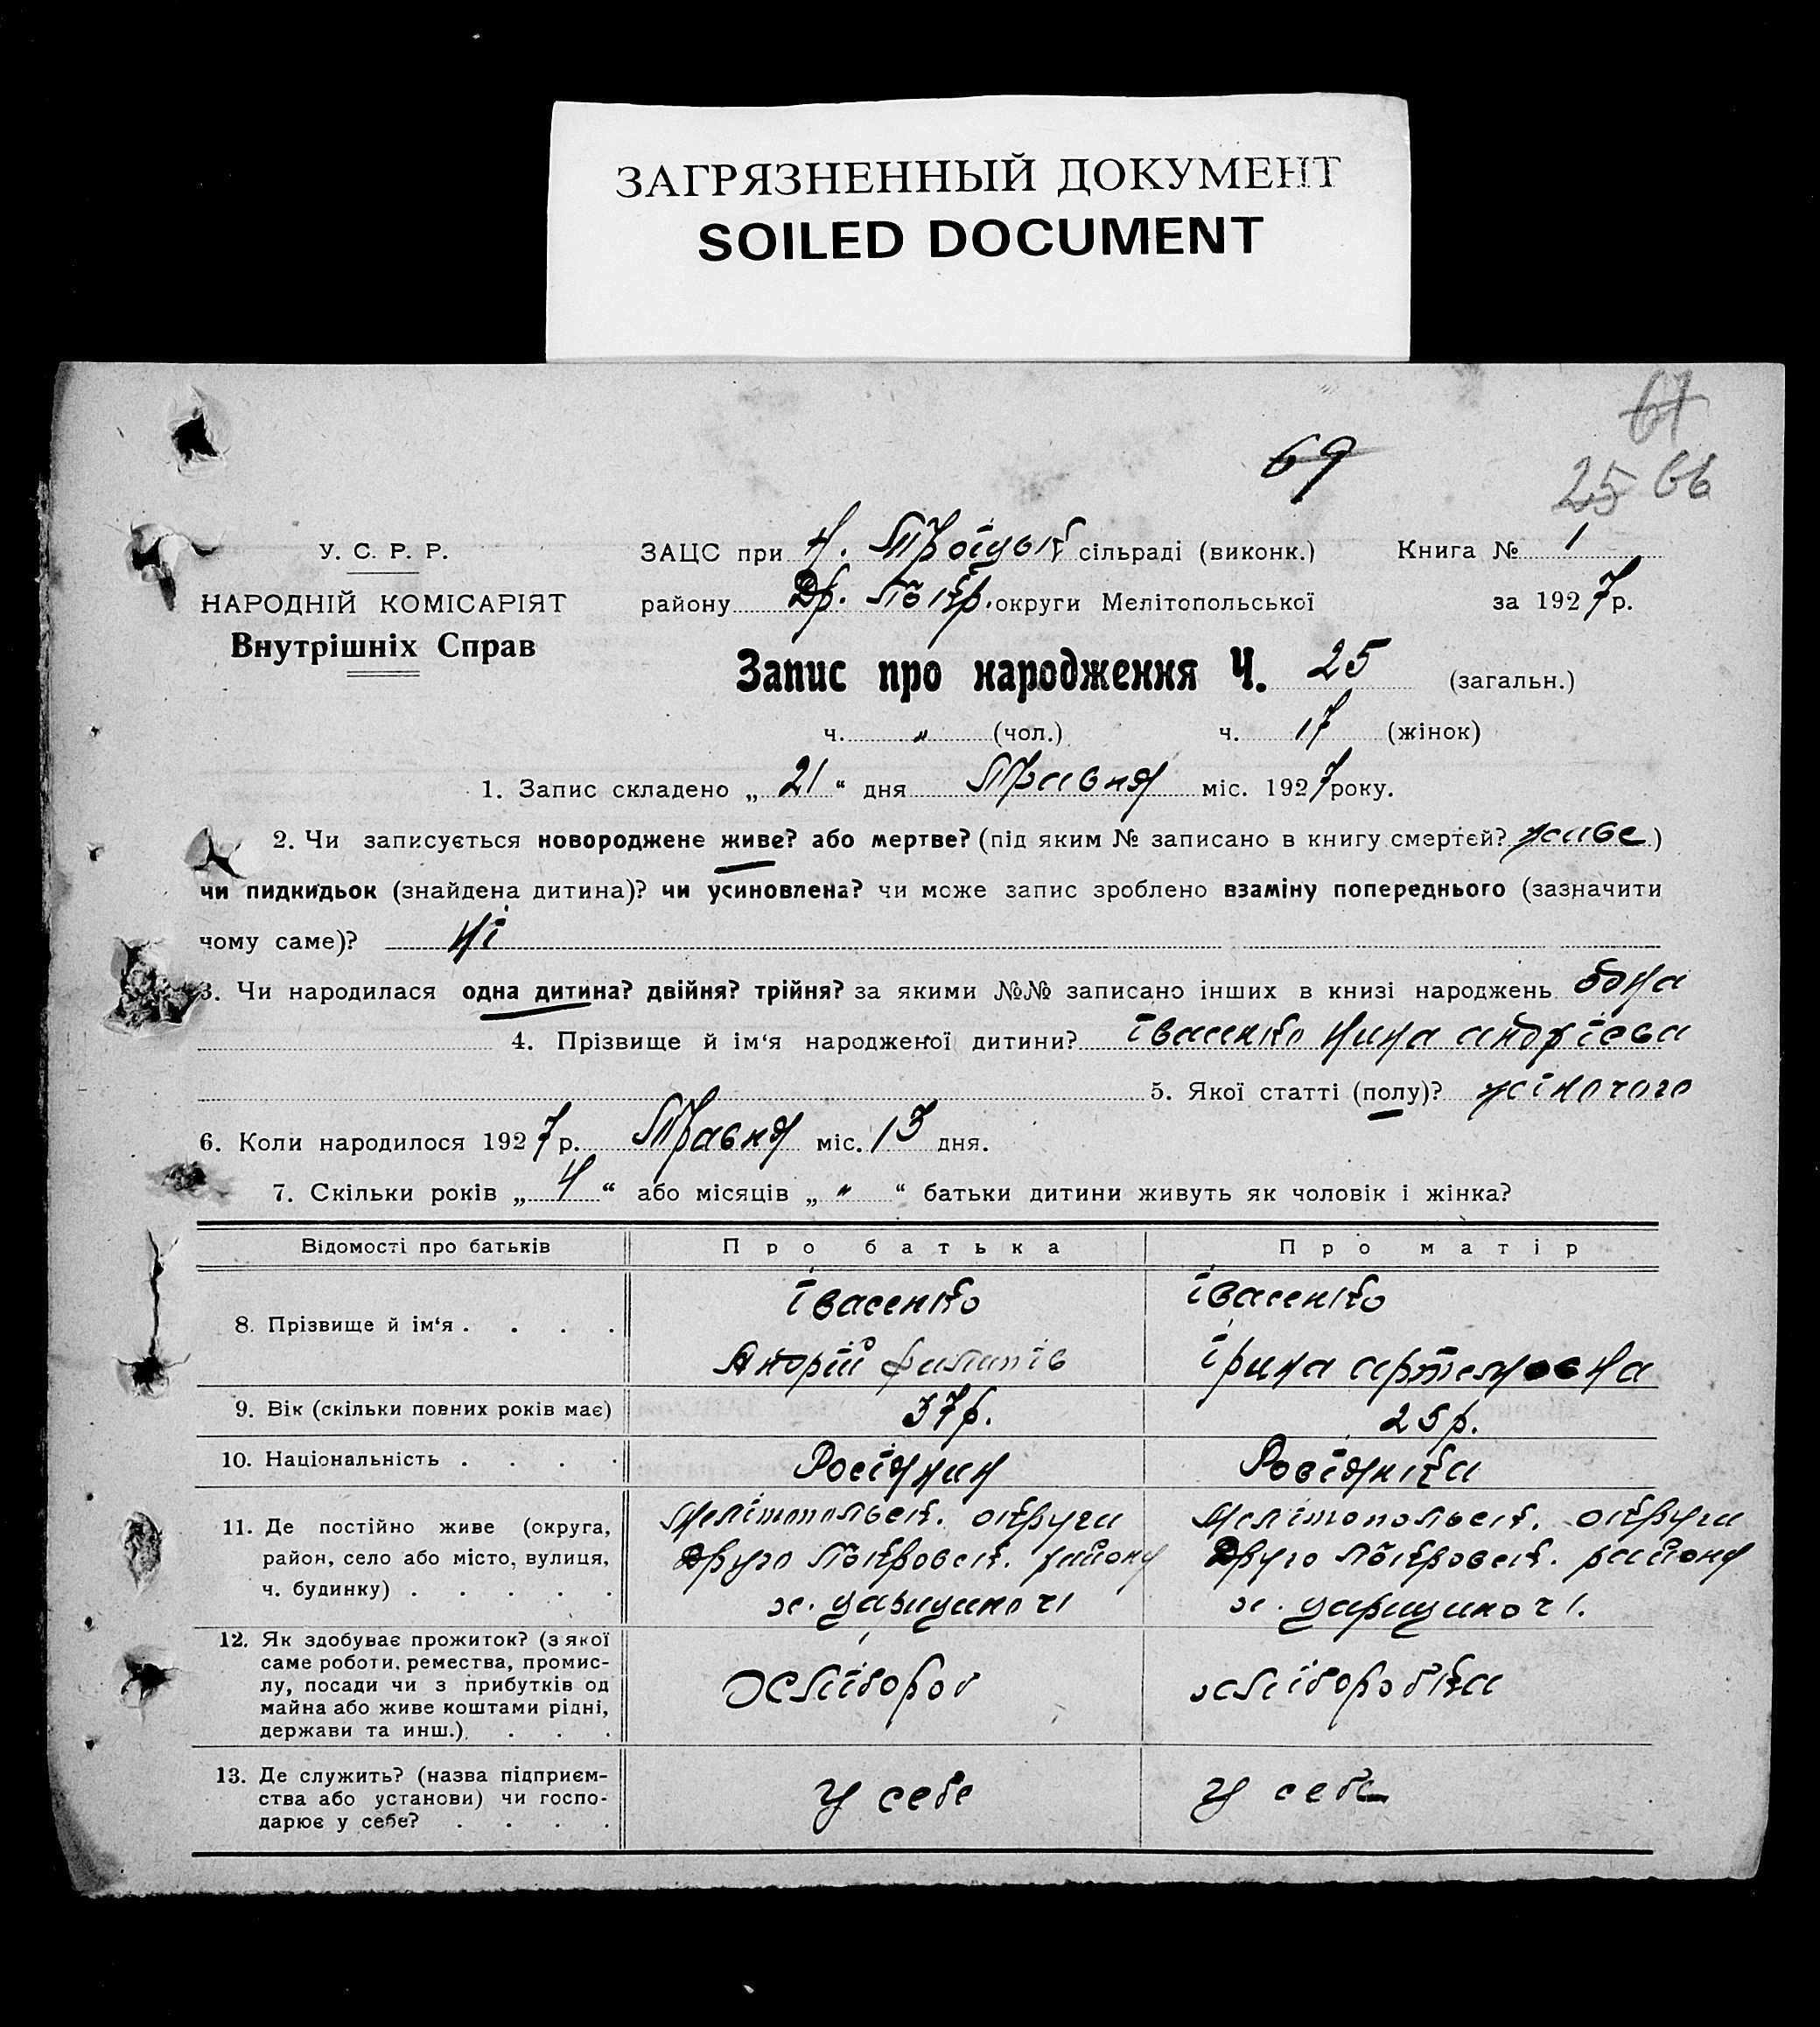 ЗАГРЯЗНЕННЫЙ ДОКУМЕНТ
SOILED DOCUMENT
67
69
25 66
У. С. Р. Р.
НАРОДНІЙ КОМІСАРІЯТ
Внутрішніх Справ
ЗАЦС при Н. Троїцьк сільраді (виконк.) Книга № 1
району Др. Покр. округи Мелітопольської за 1927 р.
Запис про народження Ч. 25 (загальн.)
ч. „ (чол.) ч. 17 (жінок)
1. Запис складено „ 21 “ дня Травня міс. 1927 року.
2. Чи записується новороджене живе? або мертве? (під яким № записано в книгу смертей? живе )
чи пидкидьок (знайдена дитина)? чи усиновлена? чи може запис зроблено взаміну попереднього (зазначити
чому саме)? Ні
3. Чи народилася одна дитина? двійня? трійня? за якими №№ записано інших в книзі народжень одна
4. Прізвище й ім‘я народженої дитини? Івасенко Нина Андрієва
5. Якої статті (полу)? жіночого
6. Коли народилося 1927 р. Травня міс. 13 дня.
7. Скільки років „ 4 “ або місяців „ „ “ батьки дитини живуть як чоловік і жінка?
Відомості про батьків Про батька Про матір
8. Прізвище й ім‘я . . . . Івасенко Івасенко
Андрій Филипів Ірина Артемовна
9. Вік (скільки повних років має) 37 р. 25 р.
10. Національність . . . . Росіянин Росіянка
11. Де постійно живе (округа, Мелітопольськ. округи Мелітопольськ. округи
район, село або місто, вулиця, Друго Покровськ. району Друго Покровськ. району
ч. будинку) . . . . . х. Царицино ч1 х. Царицино ч1.
12. Як здобуває прожиток? (з якої
саме роботи, ремества, промис-
лу, посади чи з прибутків од Хлібороб хліборобка
майна або живе коштами рідні,
держави та инш.) . . .
13. Де служить? (назва підприєм-
ства або установи) чи госпо- У себе У себе
дарює у себе? . . . .